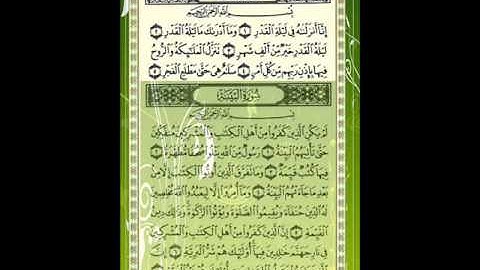 بِسْمِ اللَّهِ الرَّحْمَٰنِ الرَّحِيمِ
إِنَّا أَنزَلْنَاهُ فِي لَيْلَةِ الْقَدْرِ ١ وَمَا أَدْرَاكَ مَا لَيْلَةُ الْقَدْرِ ٢
لَيْلَةُ الْقَدْرِ خَيْرٌ مِّنْ أَلْفِ شَهْرٍ ٣ تَنَزَّلُ الْمَلَائِكَةُ وَالرُّوحُ
فِيهَا بِإِذْنِ رَبِّهِم مِّن كُلِّ أَمْرٍ ٤ سَلَامٌ هِيَ حَتَّىٰ مَطْلَعِ الْفَجْرِ ٥
سُورَةُ الْبَيِّنَةِ
بِسْمِ اللَّهِ الرَّحْمَٰنِ الرَّحِيمِ
لَمْ يَكُنِ الَّذِينَ كَفَرُوا مِنْ أَهْلِ الْكِتَابِ وَالْمُشْرِكِينَ مُنفَكِّينَ
حَتَّىٰ تَأْتِيَهُمُ الْبَيِّنَةُ ١ رَسُولٌ مِّنَ اللَّهِ يَتْلُو صُحُفًا مُّطَهَّرَةً ٢
فِيهَا كُتُبٌ قَيِّمَةٌ ٣ وَمَا تَفَرَّقَ الَّذِينَ أُوتُوا الْكِتَابَ إِلَّا مِن
بَعْدِ مَا جَاءَتْهُمُ الْبَيِّنَةُ ٤ وَمَا أُمِرُوا إِلَّا لِيَعْبُدُوا اللَّهَ مُخْلِصِينَ
لَهُ الدِّينَ حُنَفَاءَ وَيُقِيمُوا الصَّلَاةَ وَيُؤْتُوا الزَّكَاةَ وَذَٰلِكَ دِينُ
الْقَيِّمَةِ ٥ إِنَّ الَّذِينَ كَفَرُوا مِنْ أَهْلِ الْكِتَابِ وَالْمُشْرِكِينَ
فِي نَارِ جَهَنَّمَ خَالِدِينَ فِيهَا أُولَٰئِكَ هُمْ شَرُّ الْبَرِيَّةِ ٦ إِنَّ